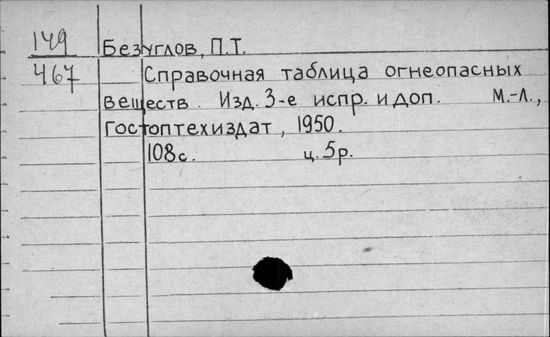 149
467
Безуглов, П.Т.
Справочная таблица огнеопасных
веществ. Изд. 3-е испр. и доп. М.-Л.,
Гостоптехиздат, 1950.
108с. ц. 5р.